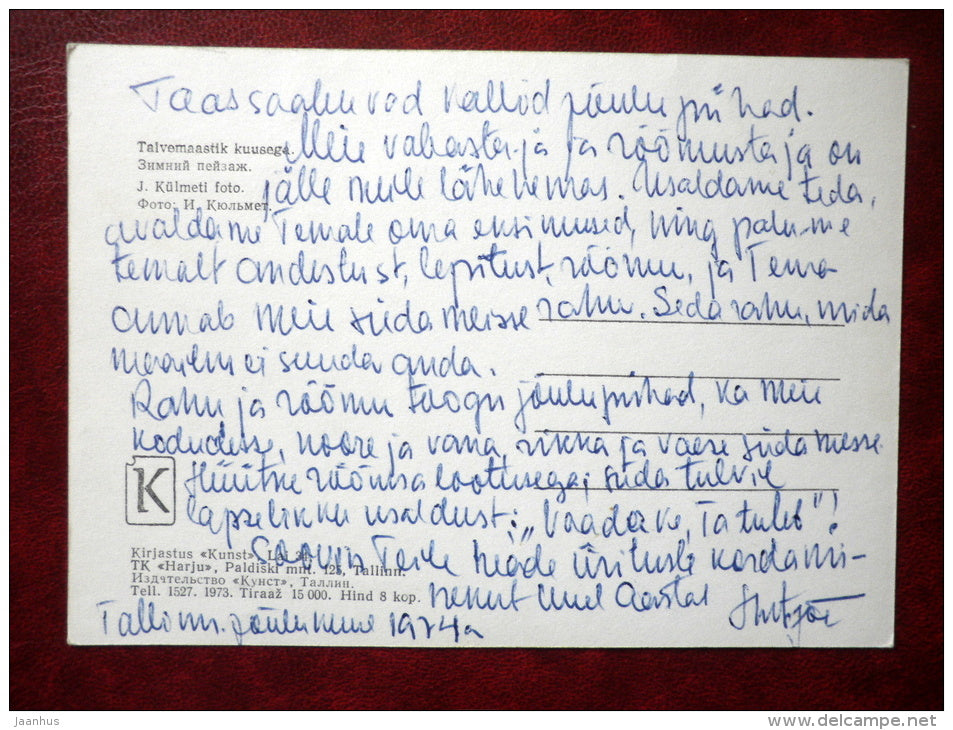 Taas saabuvad kallid jõulupühad.
Talvemaastik kuusega.
Зимний пейзаж.
J. Külmeti foto.
Фото: И. Кюльмет.
Meie vabastaja ja rõõmustaja on
jälle meile lähenemas. Usaldame teda,
avaldame Temale oma ning palume
temalt andestust, lepitust, rõõmu, ja Tema
annab meie südameisse rahu. Seda rahu, mida
maailm ei suuda anda.
Rahu ja rõõmu toogu jõulupühad, ka meie
kodudesse, noore ja vana, rikka ja vaese südamesse
Hüütke rõõmsa lootusega, süda tulvil
lapselikku usaldust: „Vaadake, Ta tuleb"!
K
Kirjastus «Kunst». Lai 34.
TK «Harju», Paldiski mnt. 125, Tallinn.
Издательство «Кунст», Таллин.
Tell. 1527. 1973. Tiraaž 15 000. Hind 8 kop.
Soovin Teile heade ürituste kordami-
nekut Uuel Aastal
Tallinn. jõulukuul 1974a
Jaanhus
www.delcampe.net